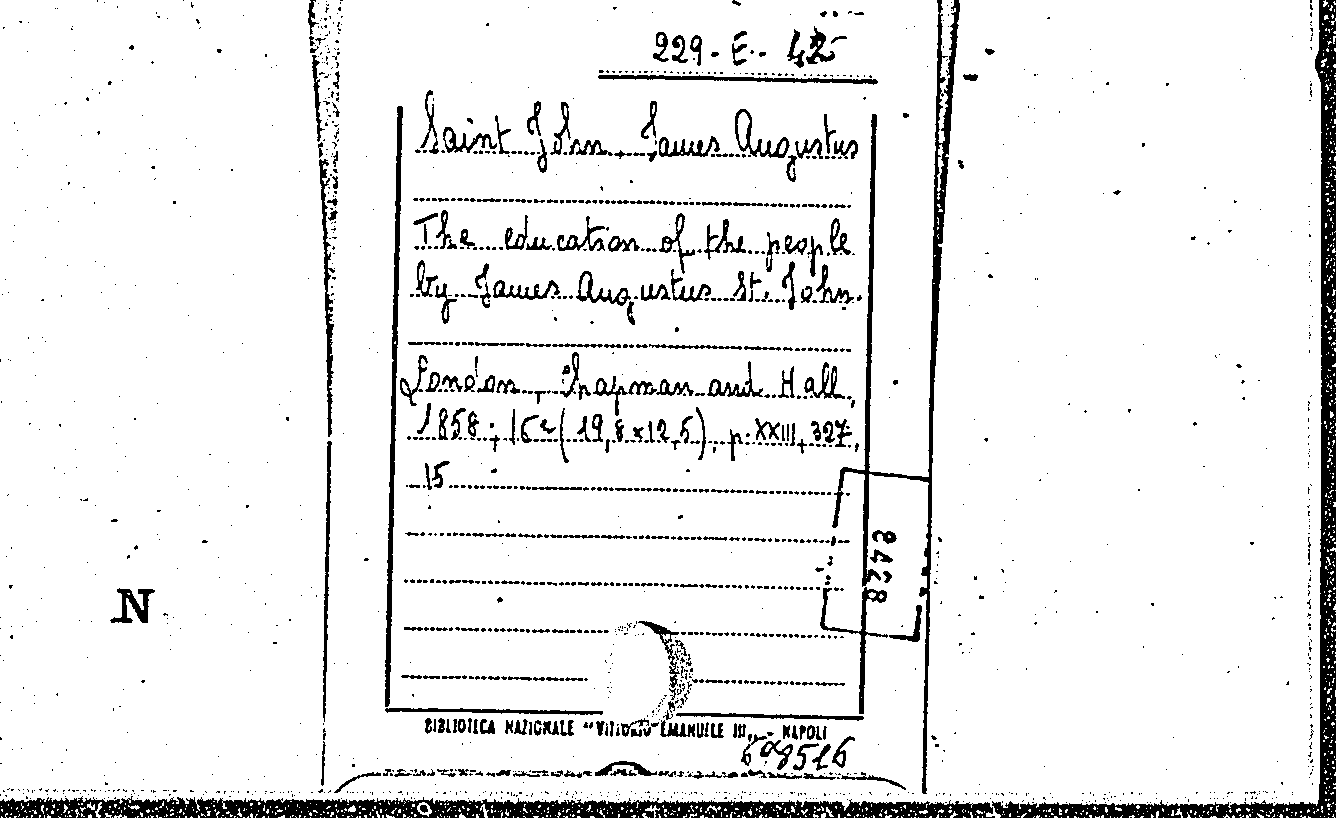 229-E-42
Saint John, James Augustus
The education of the people
by James Augustus St. John.
London, Chapman and Hall,
1858; 16° (19,8x12,5), p. XXIII, 327,
15
8428
N
BIBLIOTECA NAZIONALE "VITTORIO EMANUELE III" - NAPOLI